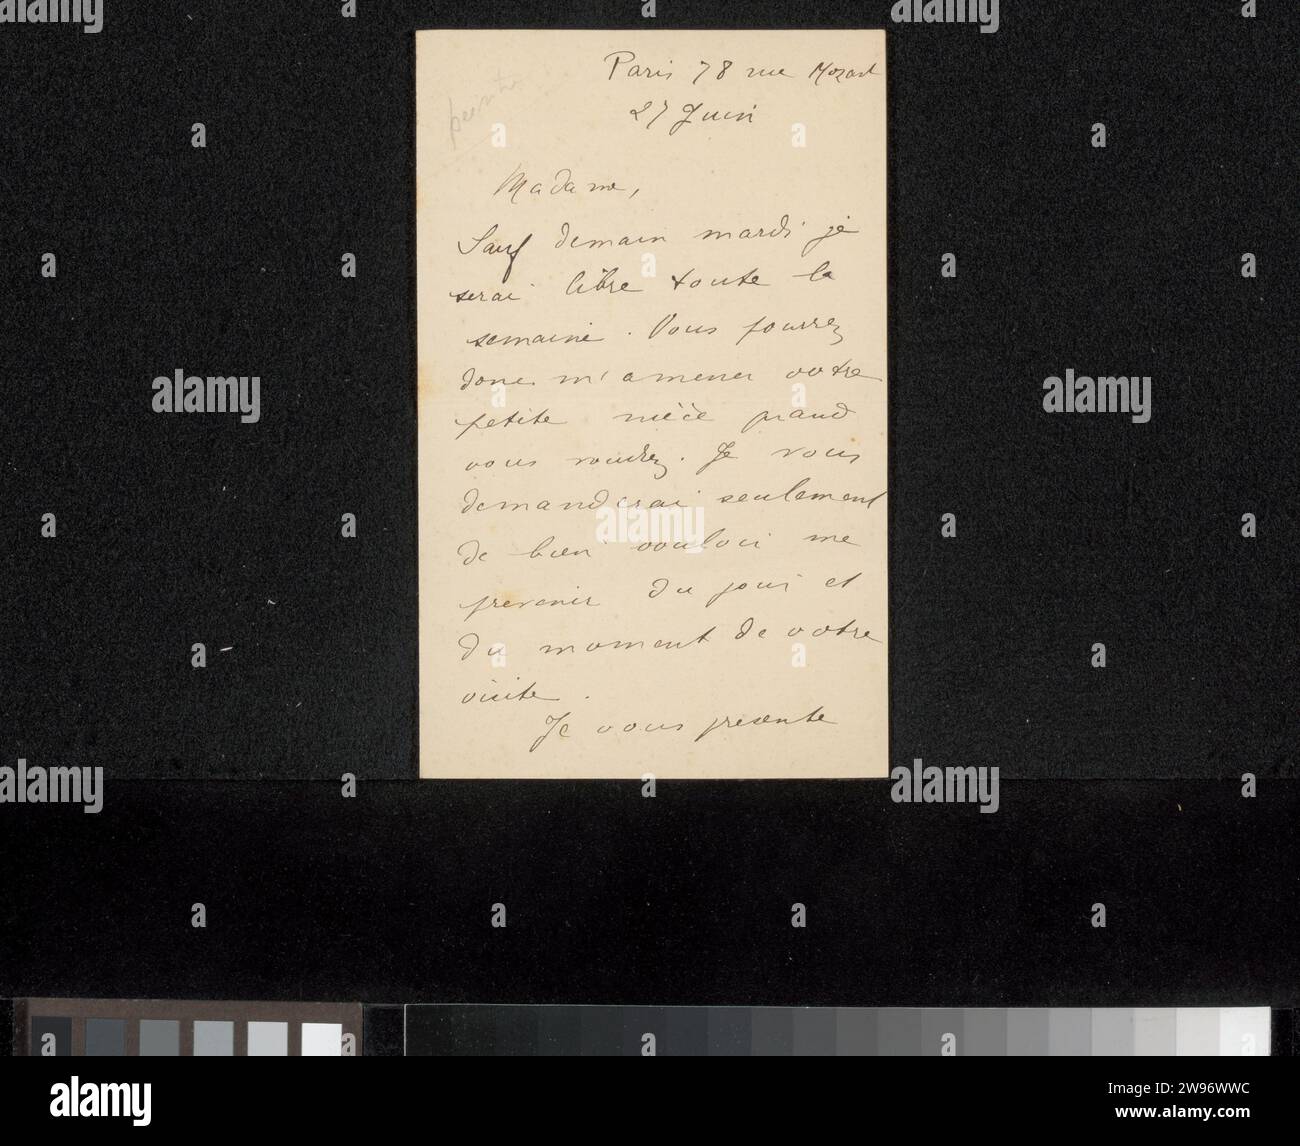 Paris 78 rue Mozart
27 Juin
peintre
Madame,
Sauf demain mardi je
serai libre toute la
semaine. Vous pourrez
donc m'amener votre
petite nièce quand
vous voudrez. Je vous
demanderai seulement
de bien vouloir me
prevenir du jour et
du moment de votre
visite.
Je vous presente
alamy
a
alamy
Image ID: 2W96WWC
www.alamy.com